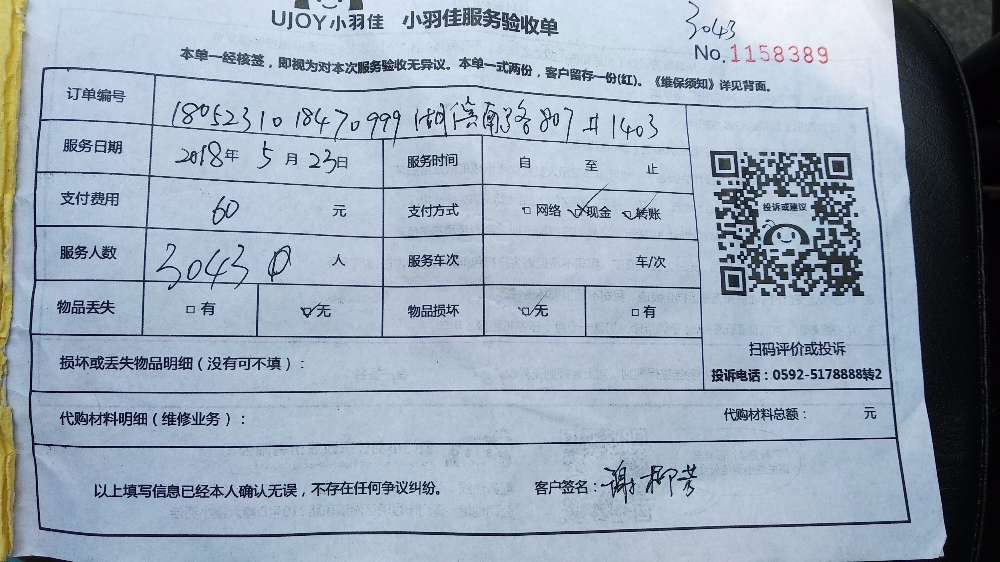 3043
UJOY小羽佳 小羽佳服务验收单
No.1158389
本单一经核签，即视为对本次服务验收无异议。本单一式两份，客户留存一份(红)。《维保须知》详见背面。
订单编号 180523101847 0999 湖滨南路807#1403
服务日期 2018年 5月 23日 服务时间 自 至 止
支付费用 60 元 支付方式 □网络 ☑现金 ☑转账
服务人数 3043 人 服务车次 车/次
物品丢失 □有 ☑无 物品损坏 ☑无 □有
投诉或建议
扫码评价或投诉
投诉电话：0592-5178888转2
损坏或丢失物品明细（没有可不填）：
代购材料明细（维修业务）： 代购材料总额： 元
以上填写信息已经本人确认无误，不存在任何争议纠纷。 客户签名：谢柳芳